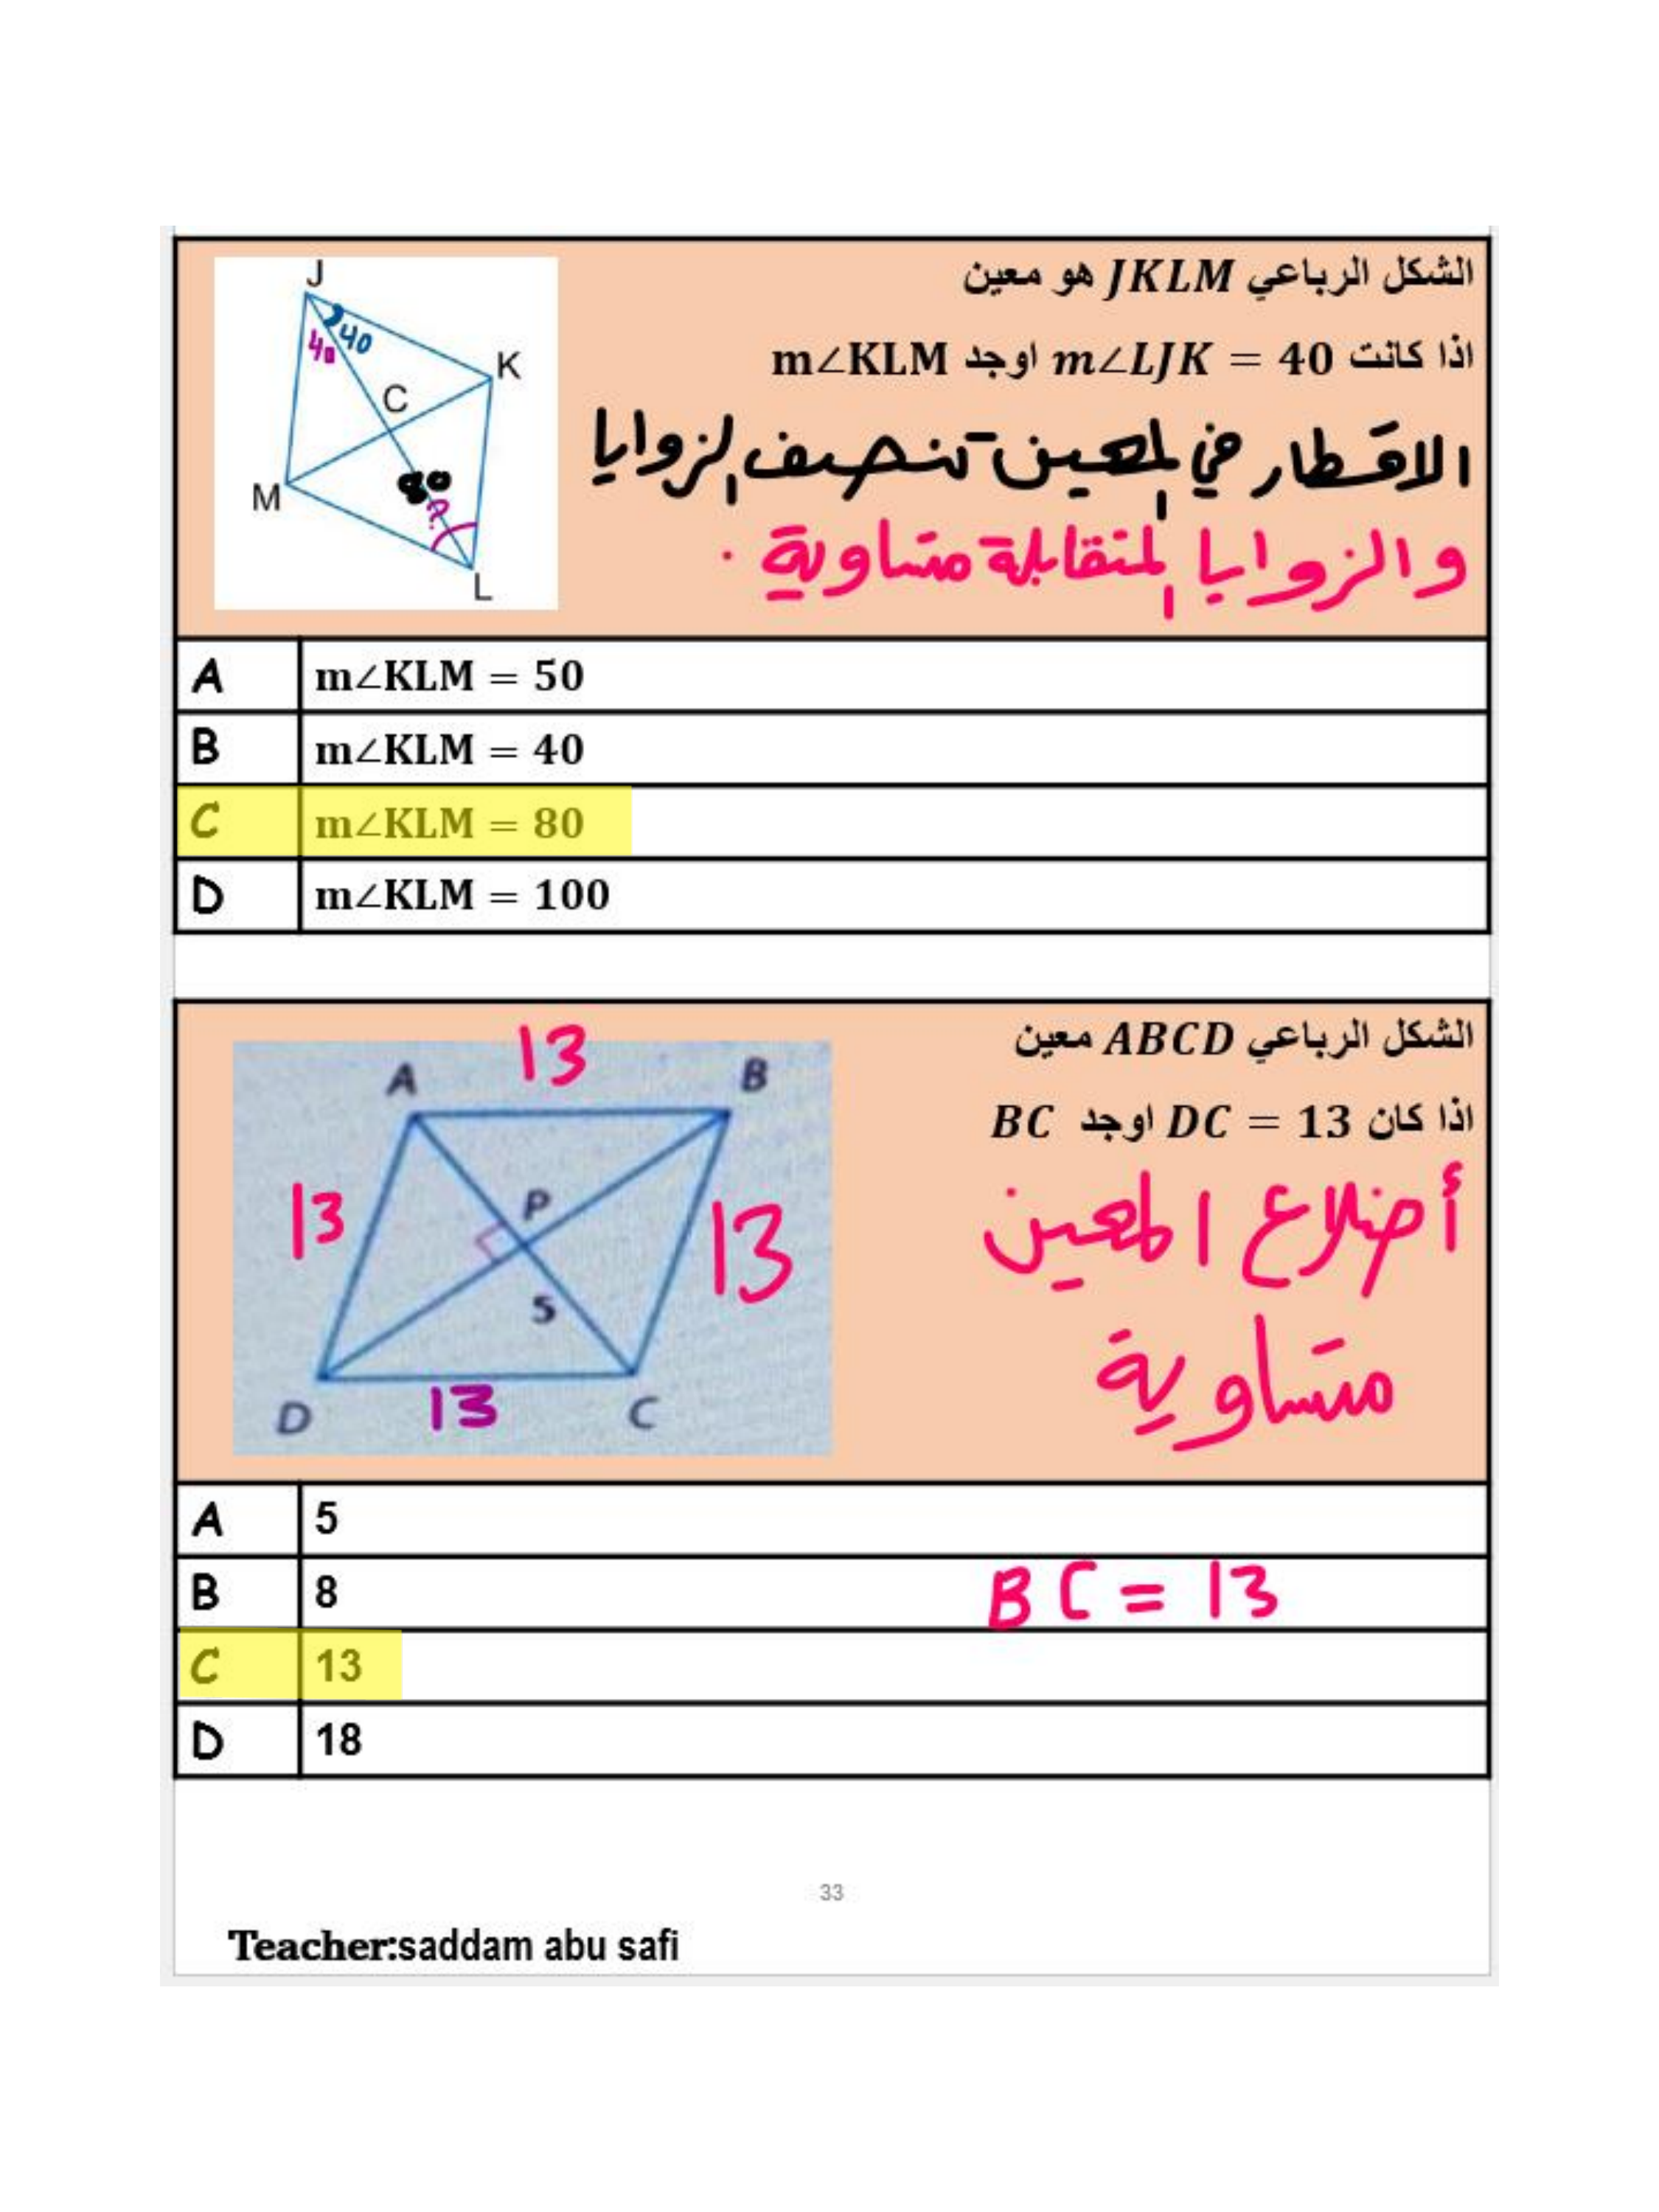 الشكل الرباعي JKLM هو معين
اذا كانت m∠LJK = 40 اوجد m∠KLM
الاقطار في المعين تنصف الزوايا
والزوايا المتقابلة متساوية .
J
40
40
K
C
M
80
?
L
A m∠KLM = 50
B m∠KLM = 40
C m∠KLM = 80
D m∠KLM = 100
الشكل الرباعي ABCD معين
اذا كان DC = 13 اوجد BC
أضلاع المعين
متساوية
13
A B
13 P 13
5
D 13 C
A 5
B 8 BC = 13
C 13
D 18
33
Teacher:saddam abu safi